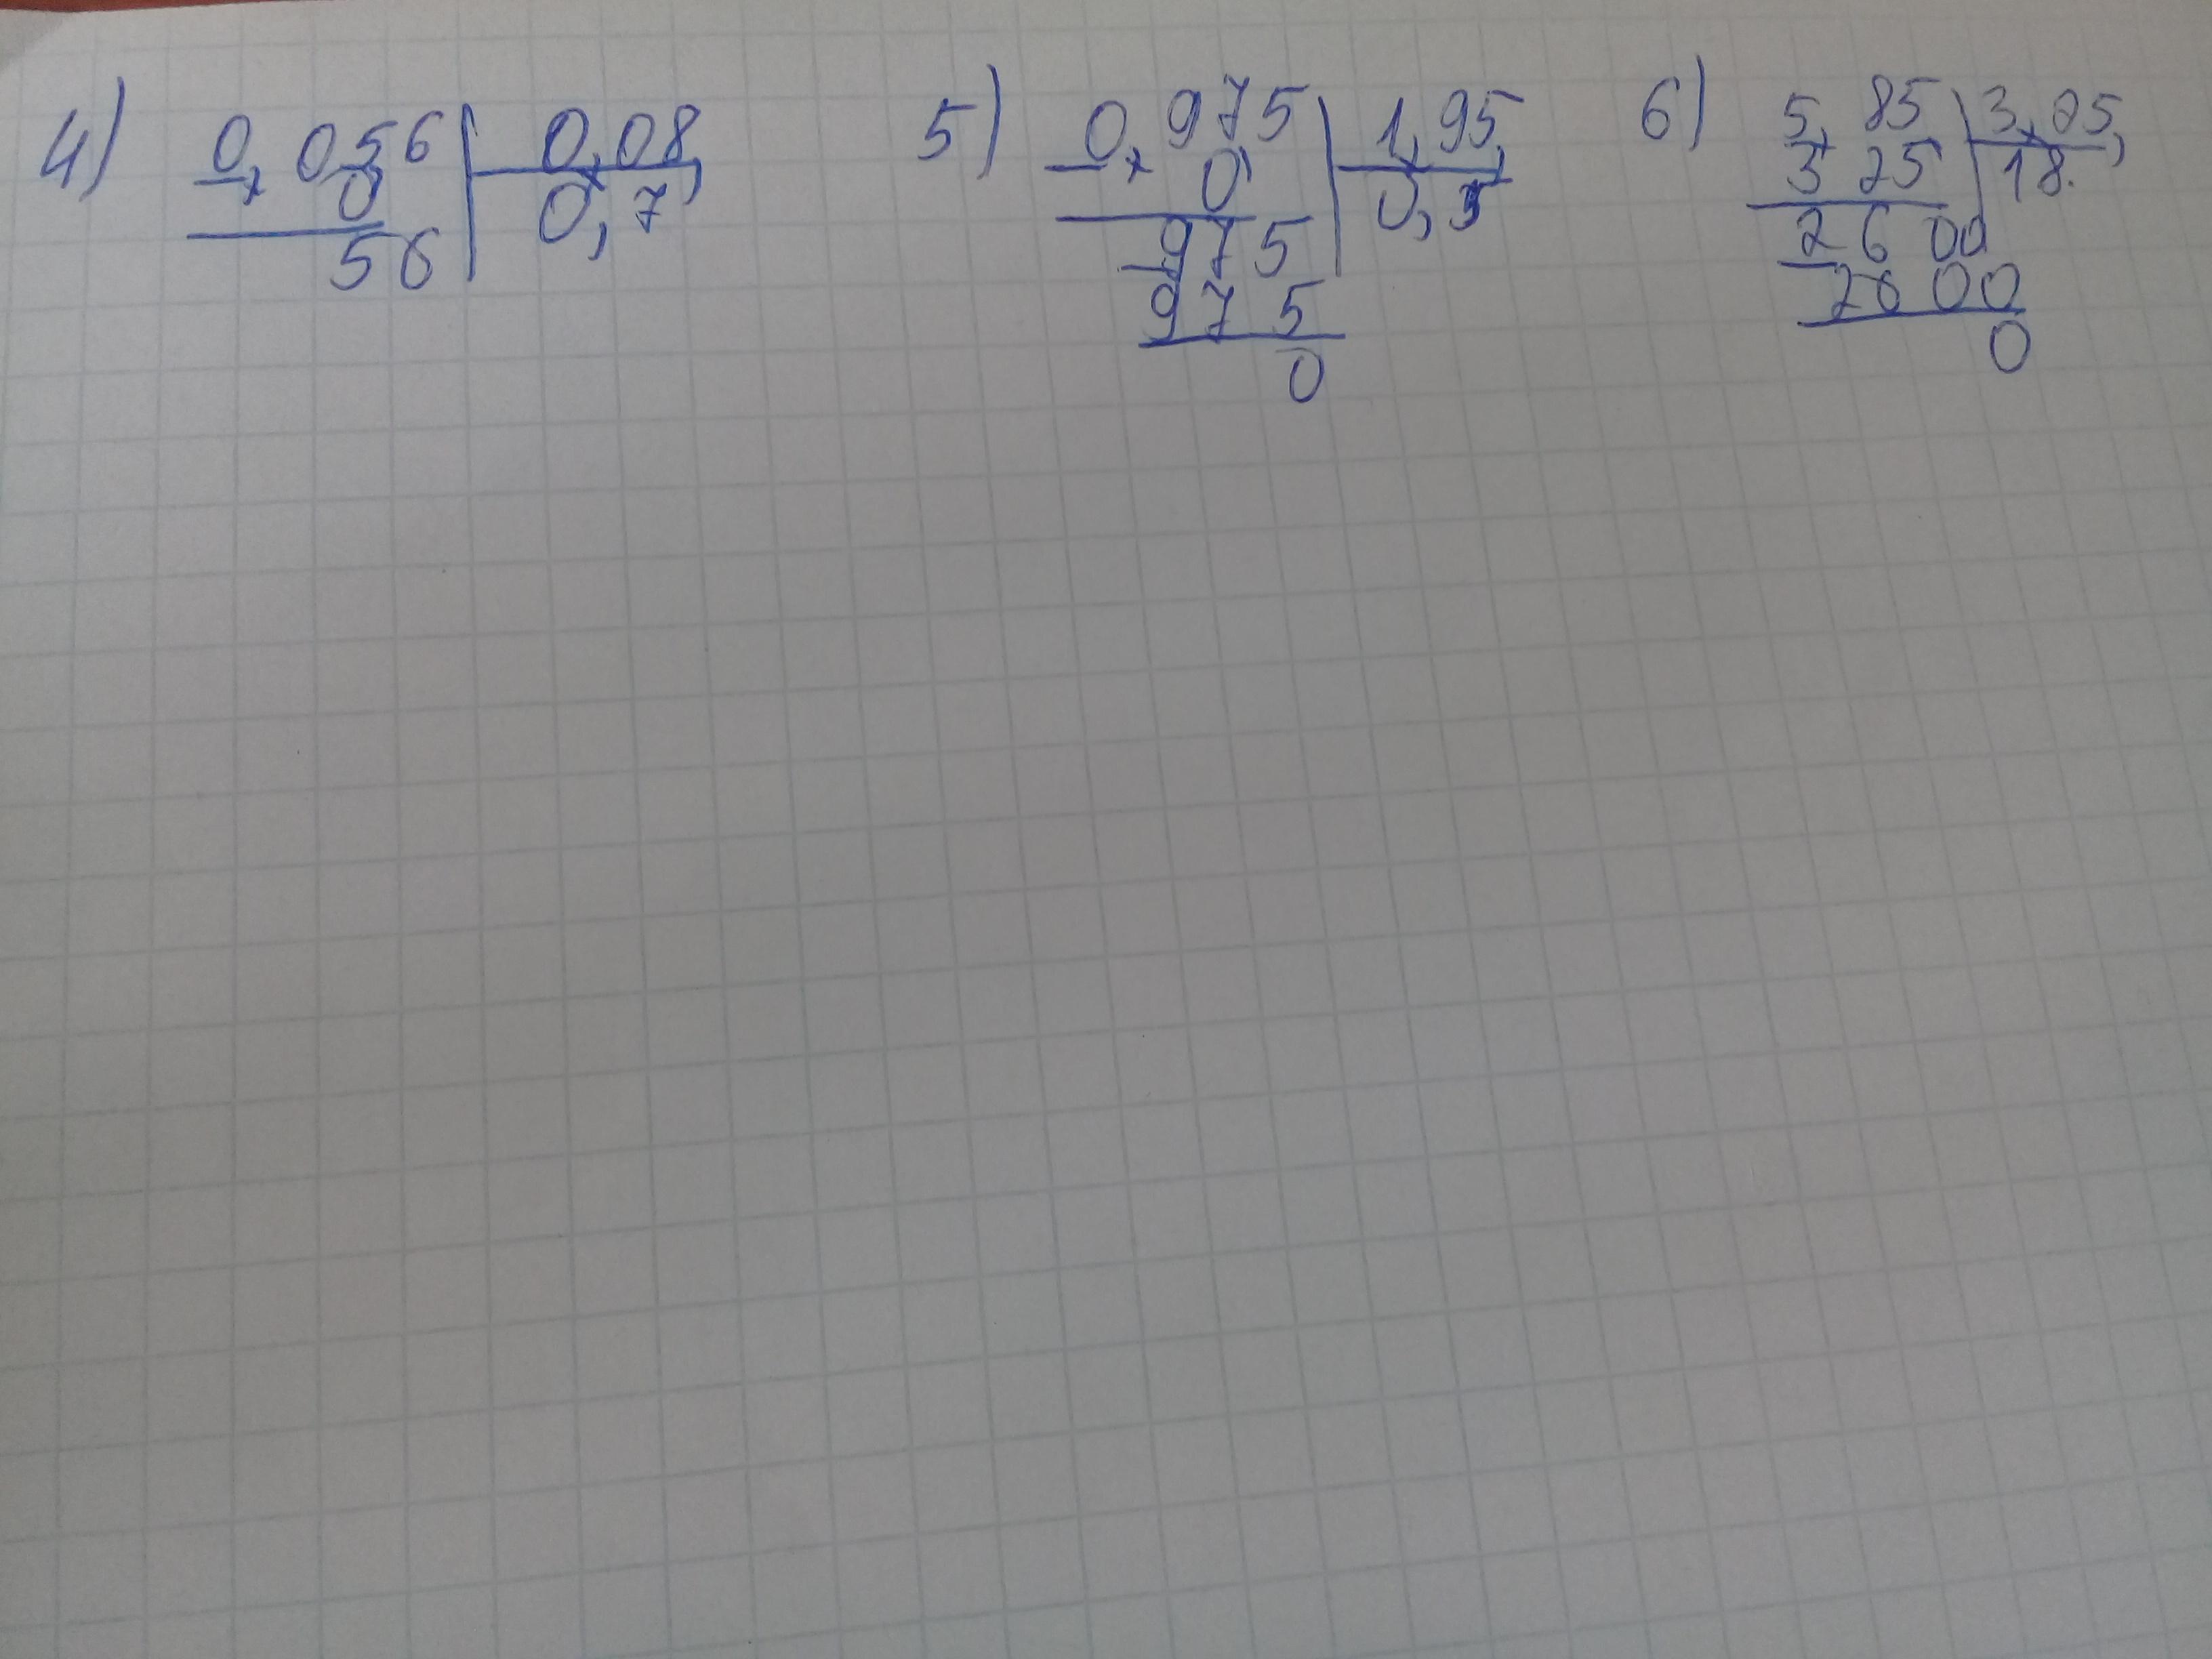 4) 0,056 | 0,08
0 | 0,7
56
5) 0,975 | 1,95
0 | 0,5
975
975
0
6) 5,85 | 3,25
3 25 | 18
2600
2600
0